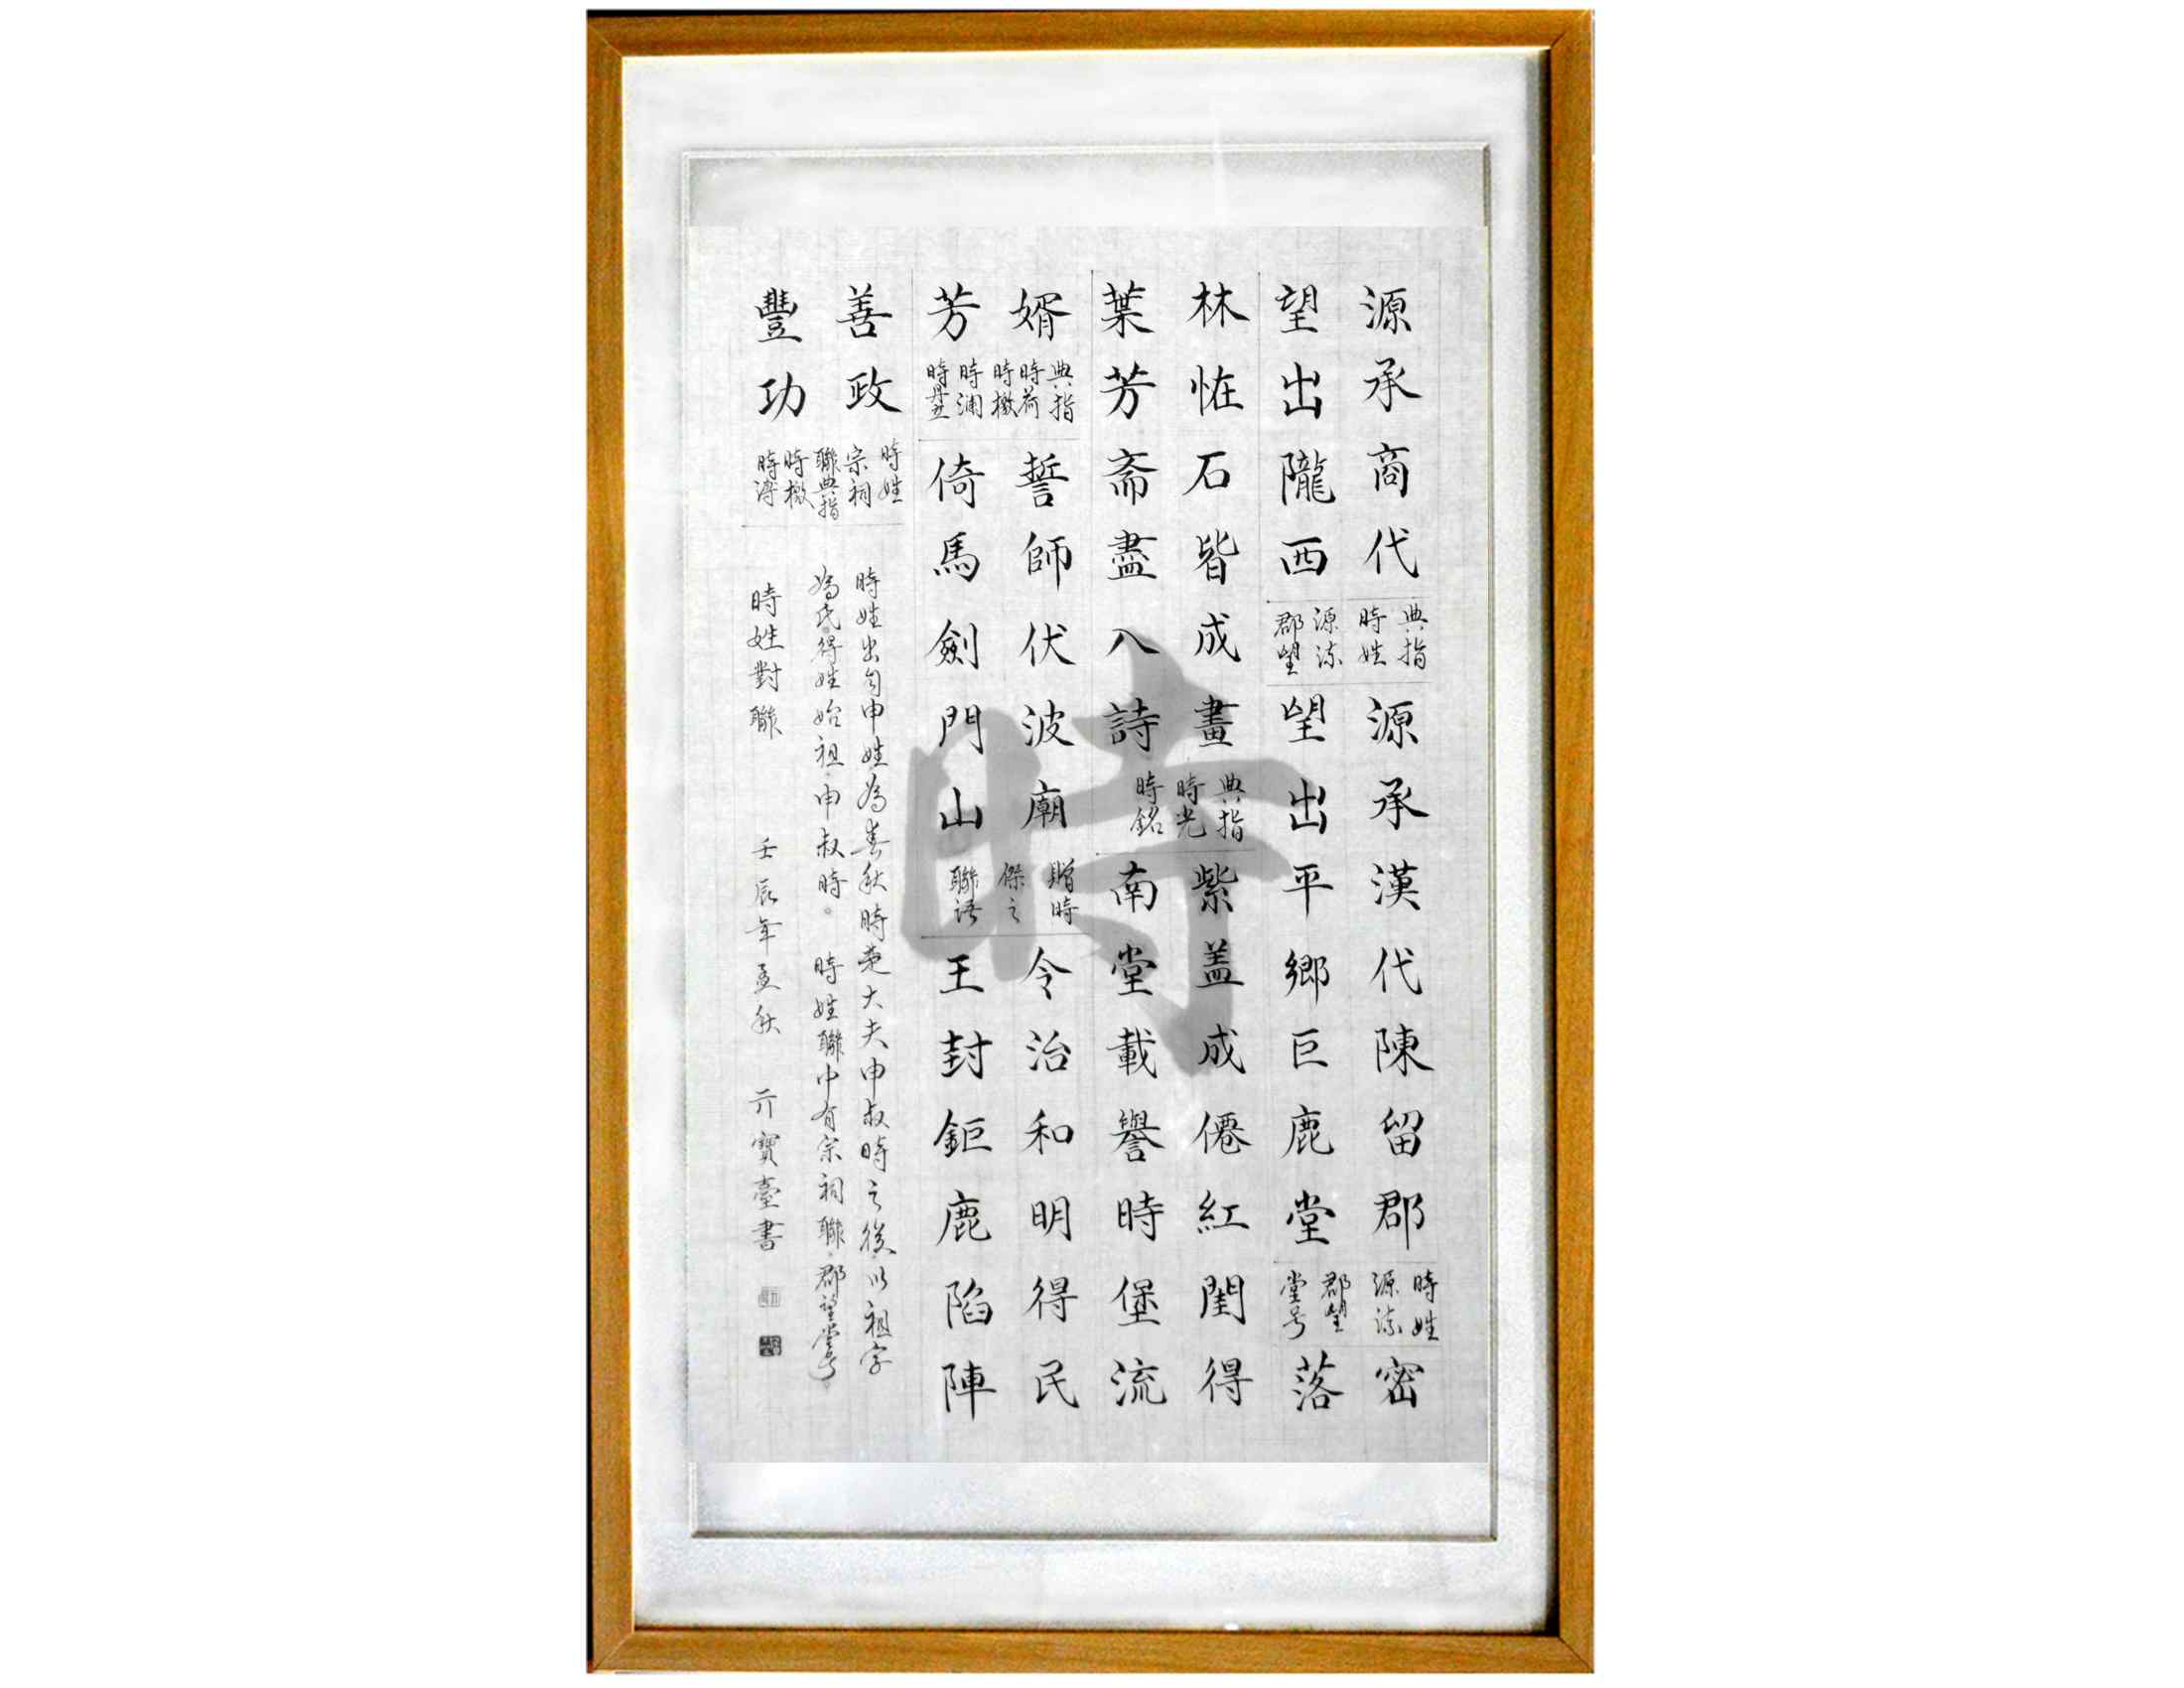 源承商代 典指時姓 源承漢代陳留郡 時姓源流 密
望出隴西 源流郡望 望出平鄉巨鹿堂 郡望堂号 落
林恠石皆成畫 典指時光 紫盖成僊紅閨得
葉芳斋盡入詩 時銘 南堂載譽時堡流
婿 典指時荷時檄 誓師伏波廟 贈時傑之 令治和明得民
芳 時澜時 倚馬劍門山 聯語 王封鉅鹿陷陣
善政 時姓宗祠聯典指
豐功 時檄時溥
時姓出自申姓為春秋時楚大夫申叔時之後以祖字
為氏得姓始祖申叔時。 時姓聯中有宗祠聯郡望堂号
時姓對聯 壬辰年孟秋 亓寶臺書
時